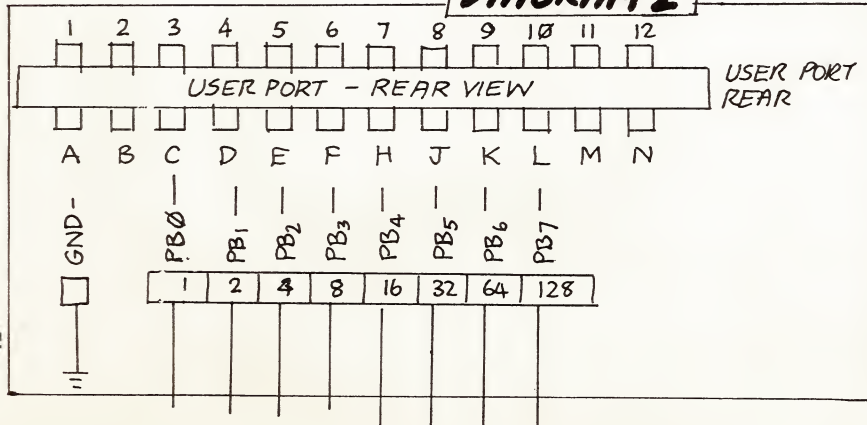 DIAGRAM 2
1 2 3 4 5 6 7 8 9 1Ø 11 12
USER PORT - REAR VIEW
USER PORT
REAR
A B C D E F H J K L M N
GND - PBØ PB1 PB2 PB3 PB4 PB5 PB6 PB7
1 2 4 8 16 32 64 128